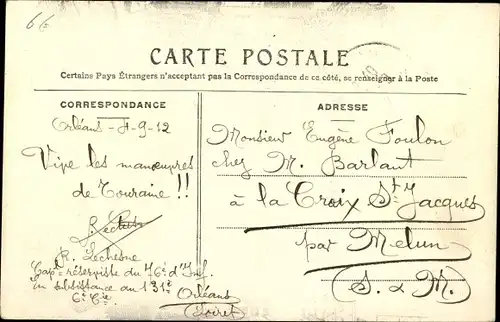 66
CARTE POSTALE
Certains Pays Étrangers n'acceptent pas la Correspondance de ce côté, se renseigner à la Poste
CORRESPONDANCE
Orléans - 4-9-12
Vive les manœuvres
de Touraine !!
R. Lechesne
Cap^al réserviste du 76^e d'Inf.
en subsistance au 131^e
6^e C^ie
Orléans
(Loiret)
ADRESSE
Monsieur Eugène Foulon
chez M. Barlant
à la Croix S^t Jacques
par Melun
(S. & M.)